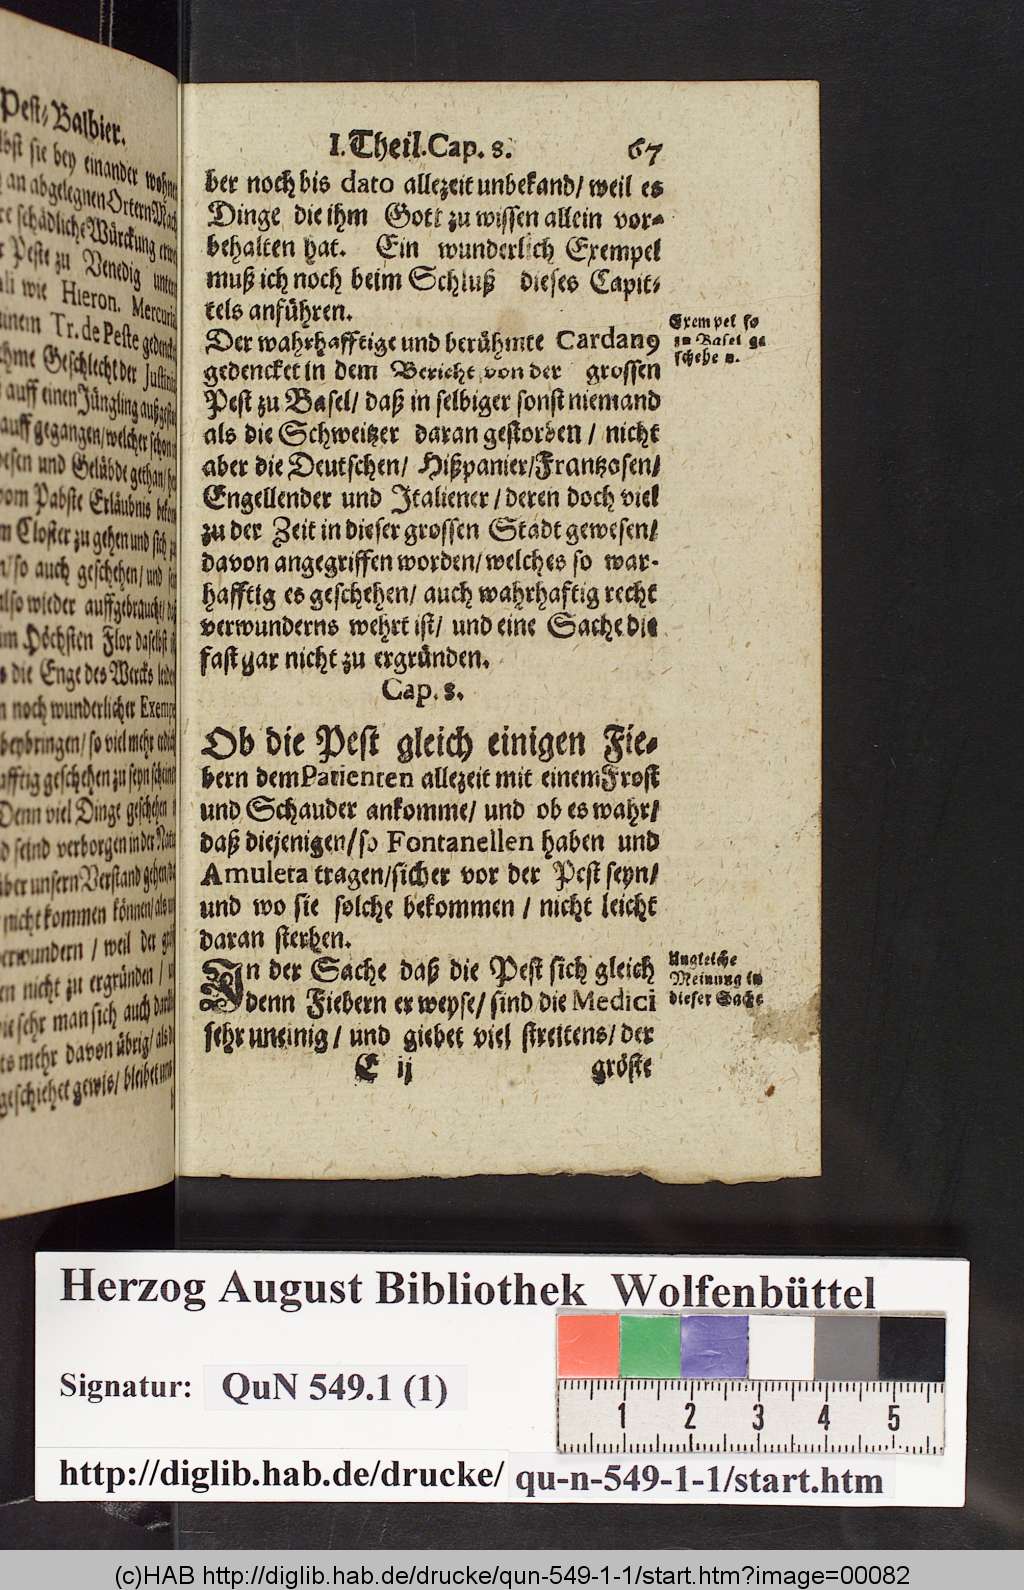 Pest-Balbier.
bst sie bey einander wohne
an abgelegnen Ortern
schädliche Würckung
Peste zu Venedig
wie Hieron. Mercuria
Tr. de Peste
Geschlecht der
auff einen Jüngling
auff gegangen/ welcher schon
und Gelübde gethan/
vom Pabste Erläubnis
Closter zu gehen und sich
so auch geschehen/ und
also wieder auffgebraucht/
Höchsten Flor daselbst
die Enge des Wercks
noch wunderlicher Exempe
beybringen/ so viel mehr
afftig geschehen zu seyn
Denn viel Dinge geschehen
seind verborgen in der Natu
über unsern Verstand gehen
nicht kommen können/ als
verwundern / weil der
nicht zu ergründen /
sehr man sich auch
mehr davon übrig/ als
geschiehet gewis/ bleibet
I. Theil. Cap. 8. 67
ber noch bis dato allezeit unbekand/ weil es
Dinge die ihm Gott zu wissen allein vor-
behalten hat. Ein wunderlich Exempel
muß ich noch beim Schluß dieses Capit-
tels anführen.
Der wahrhafftige und berühmte Cardanꝰ
gedencket in dem Bericht von der grossen
Pest zu Basel/ daß in selbiger sonst niemand
als die Schweitzer daran gestorben / nicht
aber die Deutschen/ Hißpanier/ Frantzosen/
Engellender und Italiener / deren doch viel
zu der Zeit in dieser grossen Stadt gewesen/
davon angegriffen worden/ welches so war-
hafftig es geschehen/ auch wahrhaftig recht
verwunderns wehrt ist/ und eine Sache die
fast gar nicht zu ergründen.
Exempel so
zu Basel ge
schehen.
Cap. 8.
Ob die Pest gleich einigen Fie-
bern dem Patienten allezeit mit einem Frost
und Schauder ankomme/ und ob es wahr/
daß diejenigen/ so Fontanellen haben und
Amuleta tragen/ sicher vor der Pest seyn/
und wo sie solche bekommen / nicht leicht
daran sterben.
In der Sache daß die Pest sich gleich
denn Fiebern erweyse/ sind die Medici
sehr uneinig / und giebet viel streitens/ der
Ungleiche
Meinung in
dieser Sache
E ij gröste
Herzog August Bibliothek Wolfenbüttel
Signatur: QuN 549.1 (1)
1 2 3 4 5
http://diglib.hab.de/drucke/ qu-n-549-1-1/start.htm
(c)HAB http://diglib.hab.de/drucke/qun-549-1-1/start.htm?image=00082